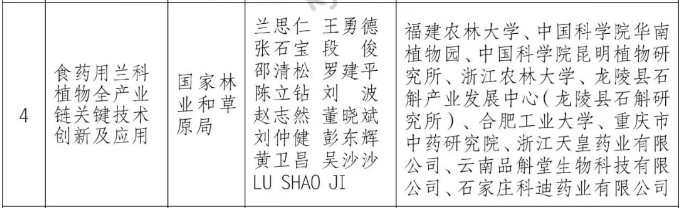 4
食药用兰科
植物全产业
链关键技术
创新及应用
国家林
业和草
原局
兰思仁 王勇德
张石宝 段 俊
邵清松 罗建平
陈立钻 刘 波
赵志然 董晓斌
刘仲健 彭东辉
黄卫昌 吴沙沙
LU SHAO JI
福建农林大学、中国科学院华南
植物园、中国科学院昆明植物研
究所、浙江农林大学、龙陵县石
斛产业发展中心(龙陵县石斛研
究所)、合肥工业大学、重庆市
中药研究院、浙江天皇药业有限
公司、云南品斛堂生物科技有限
公司、石家庄科迪药业有限公司